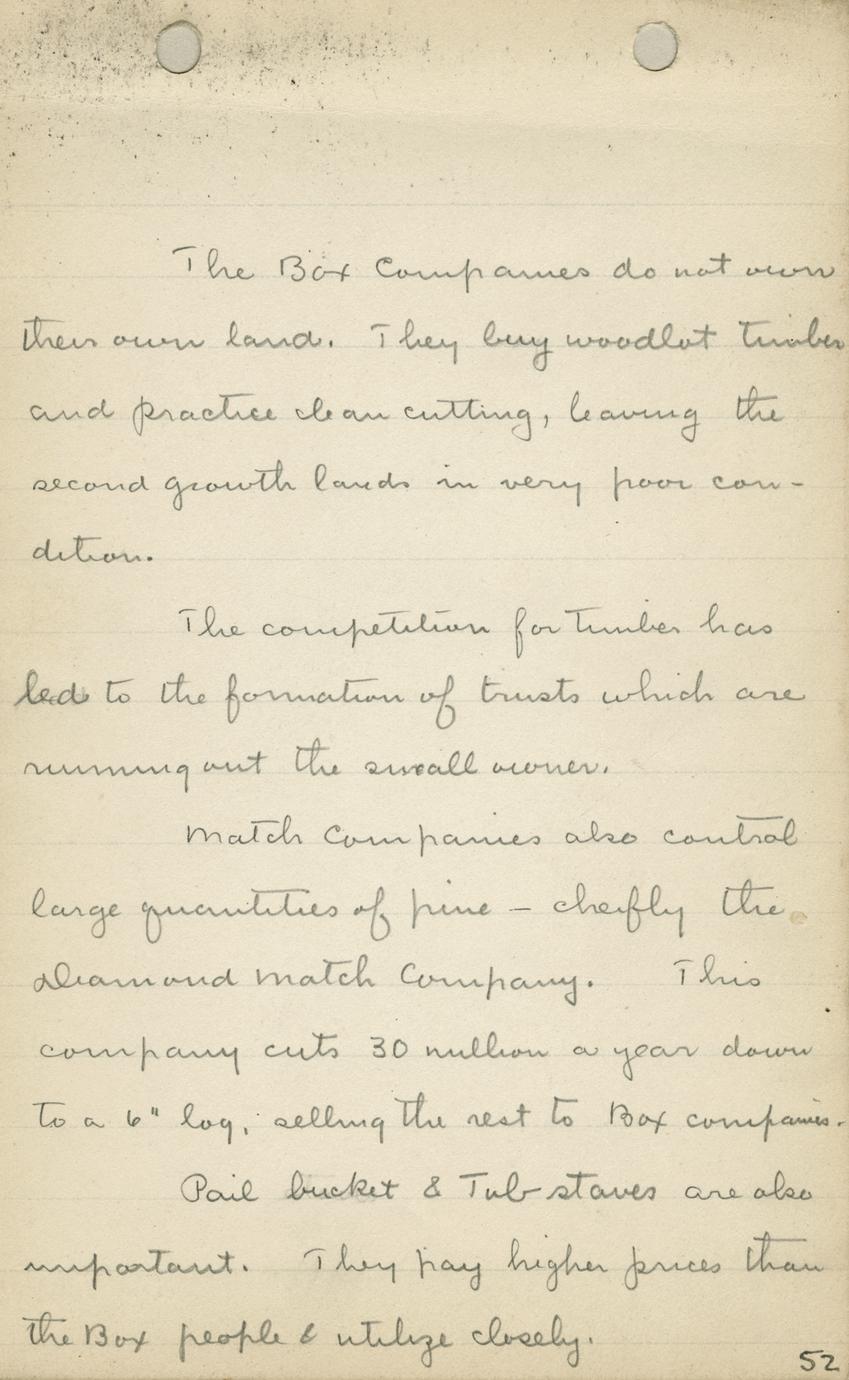 The Box Companies do not own
their own land. They buy woodlot timber
and practice clean cutting, leaving the
second growth lands in very poor con-
dition.
The competition for timber has
led to the formation of trusts which are
running out the small owner.
Match Companies also control
large quantities of pine — cheifly the
Diamond Match Company. This
company cuts 30 million a year down
to a 6" log, selling the rest to Box companies.
Pail bucket & Tub staves are also
important. They pay higher prices than
the Box people & utilize closely.
52